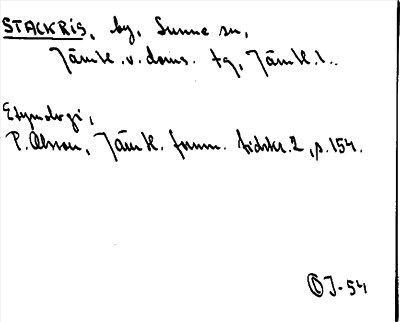 STACKRIS, by, Sunne sn,
Jämtl. v. doms. tg, Jämtl. l.
Etymologi,
P. Olsson, Jämtl. fornm. tidskr. 2, p. 154.
ÖJ-54